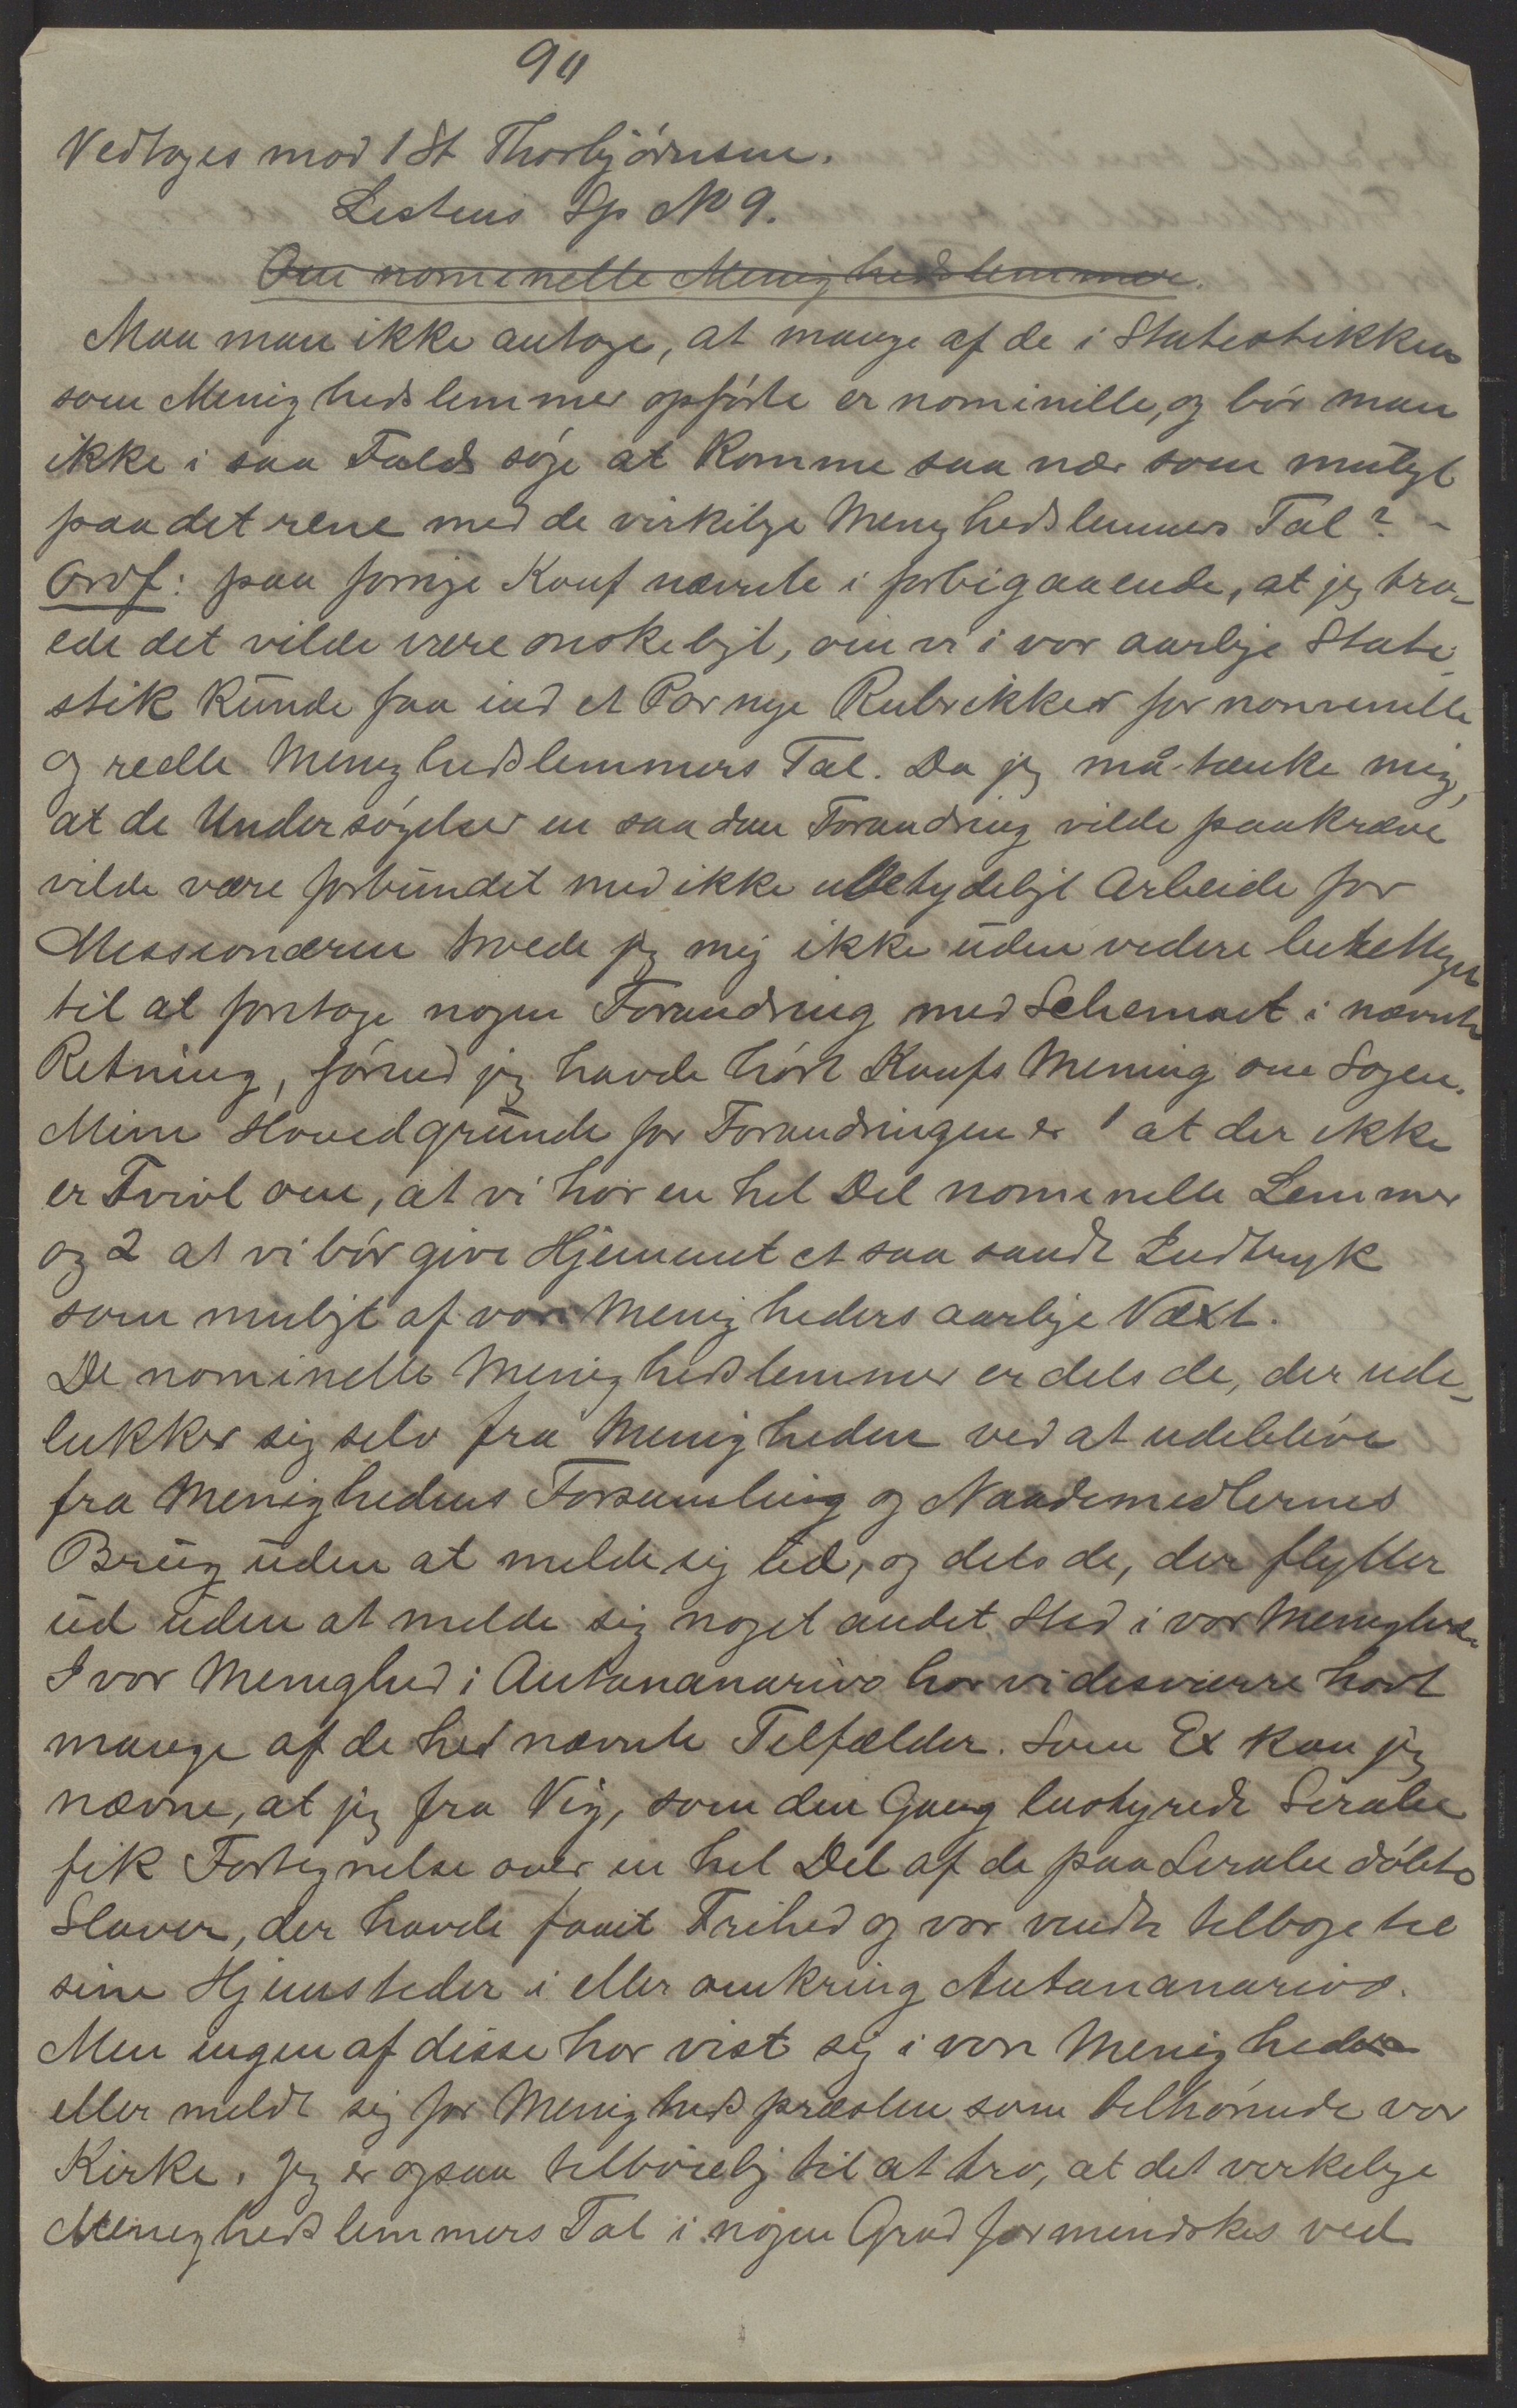 90
Vedtoges mod 1 St Thorbjørnsen.
Listens Sp No 9.
Om nominelle Menighedslemmer.
Maa man ikke antage, at mange af de i Statestikken
som Menighedslemmer opførte er nominelle, og bør man
ikke i saa Fald søge at komme saa nær som muligt
paa det rene med de virkelige Menighedslemmers Tal? -
Ordf: paa forrige Konf nævnte i forbigaaende, at jeg tro-
ede det vilde være ønskeligt, om vi i vor aarlige Stati-
stik kunde faa ind et Par nye Rubrikker for nominelle
og reelle Menighedslemmers Tal. Da jeg må tænke mig,
at de Undersøgelser en saadan Forandring vilde paakræve
vilde være forbundet med ikke ubetydeligt Arbeide for
Missionæren troede jeg mig ikke uden videre berettiget
til at foretage nogen Forandring med Schemaet i nævnte
Retning, førend jeg havde hørt Konfs Mening om Sagen.
Mine Hovedgrunde for Forandringen er 1 at der ikke
er Tvivl om, at vi har en hel Del nominelle Lemmer
og 2 at vi bør give Hjemmet et saa sandt Indtryk
som muligt af vore Menigheders aarlige Væxt.
De nominelle Menighedslemmer er dels de, der ude-
lukker sig selv fra Menigheden ved at udeblive
fra Menighedens Forsamling og Naademidlernes
Brug uden at melde sig ud, og dels de, der flytter
ud uden at melde sig noget andet Sted i vor Menighed.
I vor Menighed i Antananarivo har vi desværre havt
mange af de sidst nævnte Tilfælder. Som Ex kan jeg
nævne, at jeg fra Vig, som den Gang bestyrede Sirabe
fik Fortegnelse over en hel Del af de paa Sirabe døbte
Slaver, der havde faaet Frihed og var vendte tilbage til
sine Hjemsteder i eller omkring Antananarivo.
Men ingen af disse har vist sig i vore Menigheder
eller meldt sig for Menighedspræsten som tilhørende vor
Kirke. Jeg er ogsaa tilbøielig til at tro, at det virkelige
Menighedslemmers Tal i nogen Grad formindskes ved